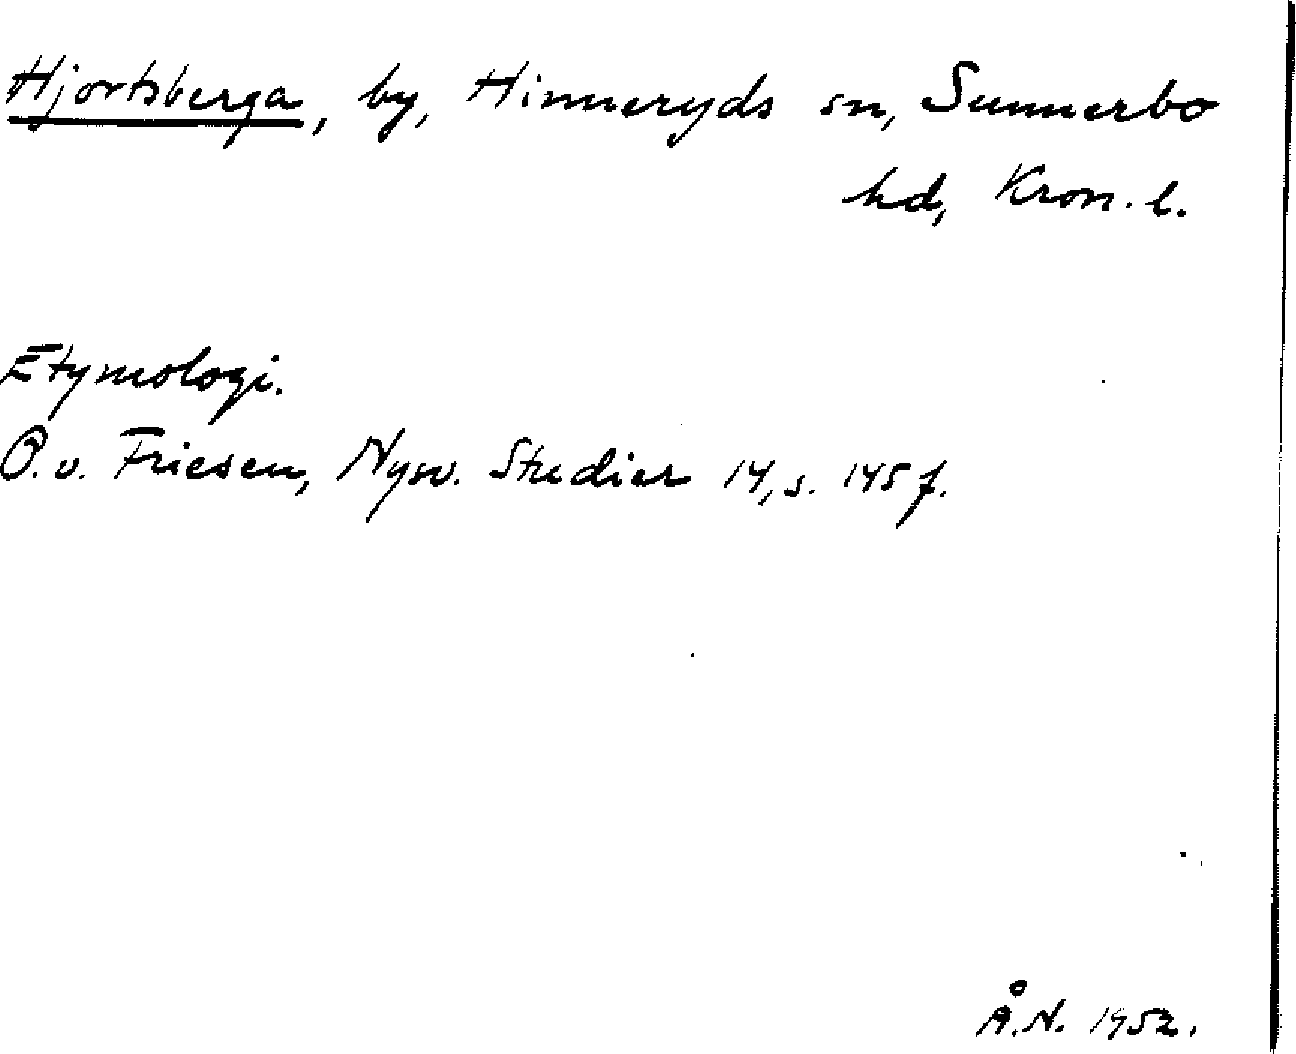 Hjortsberga, by, Hinneryds sn, Sunnerbo
hd, Kron. l.
Etymologi.
O. v. Friesen, Nysv. Studier 14, s. 145 f.
Å.N. 1952.